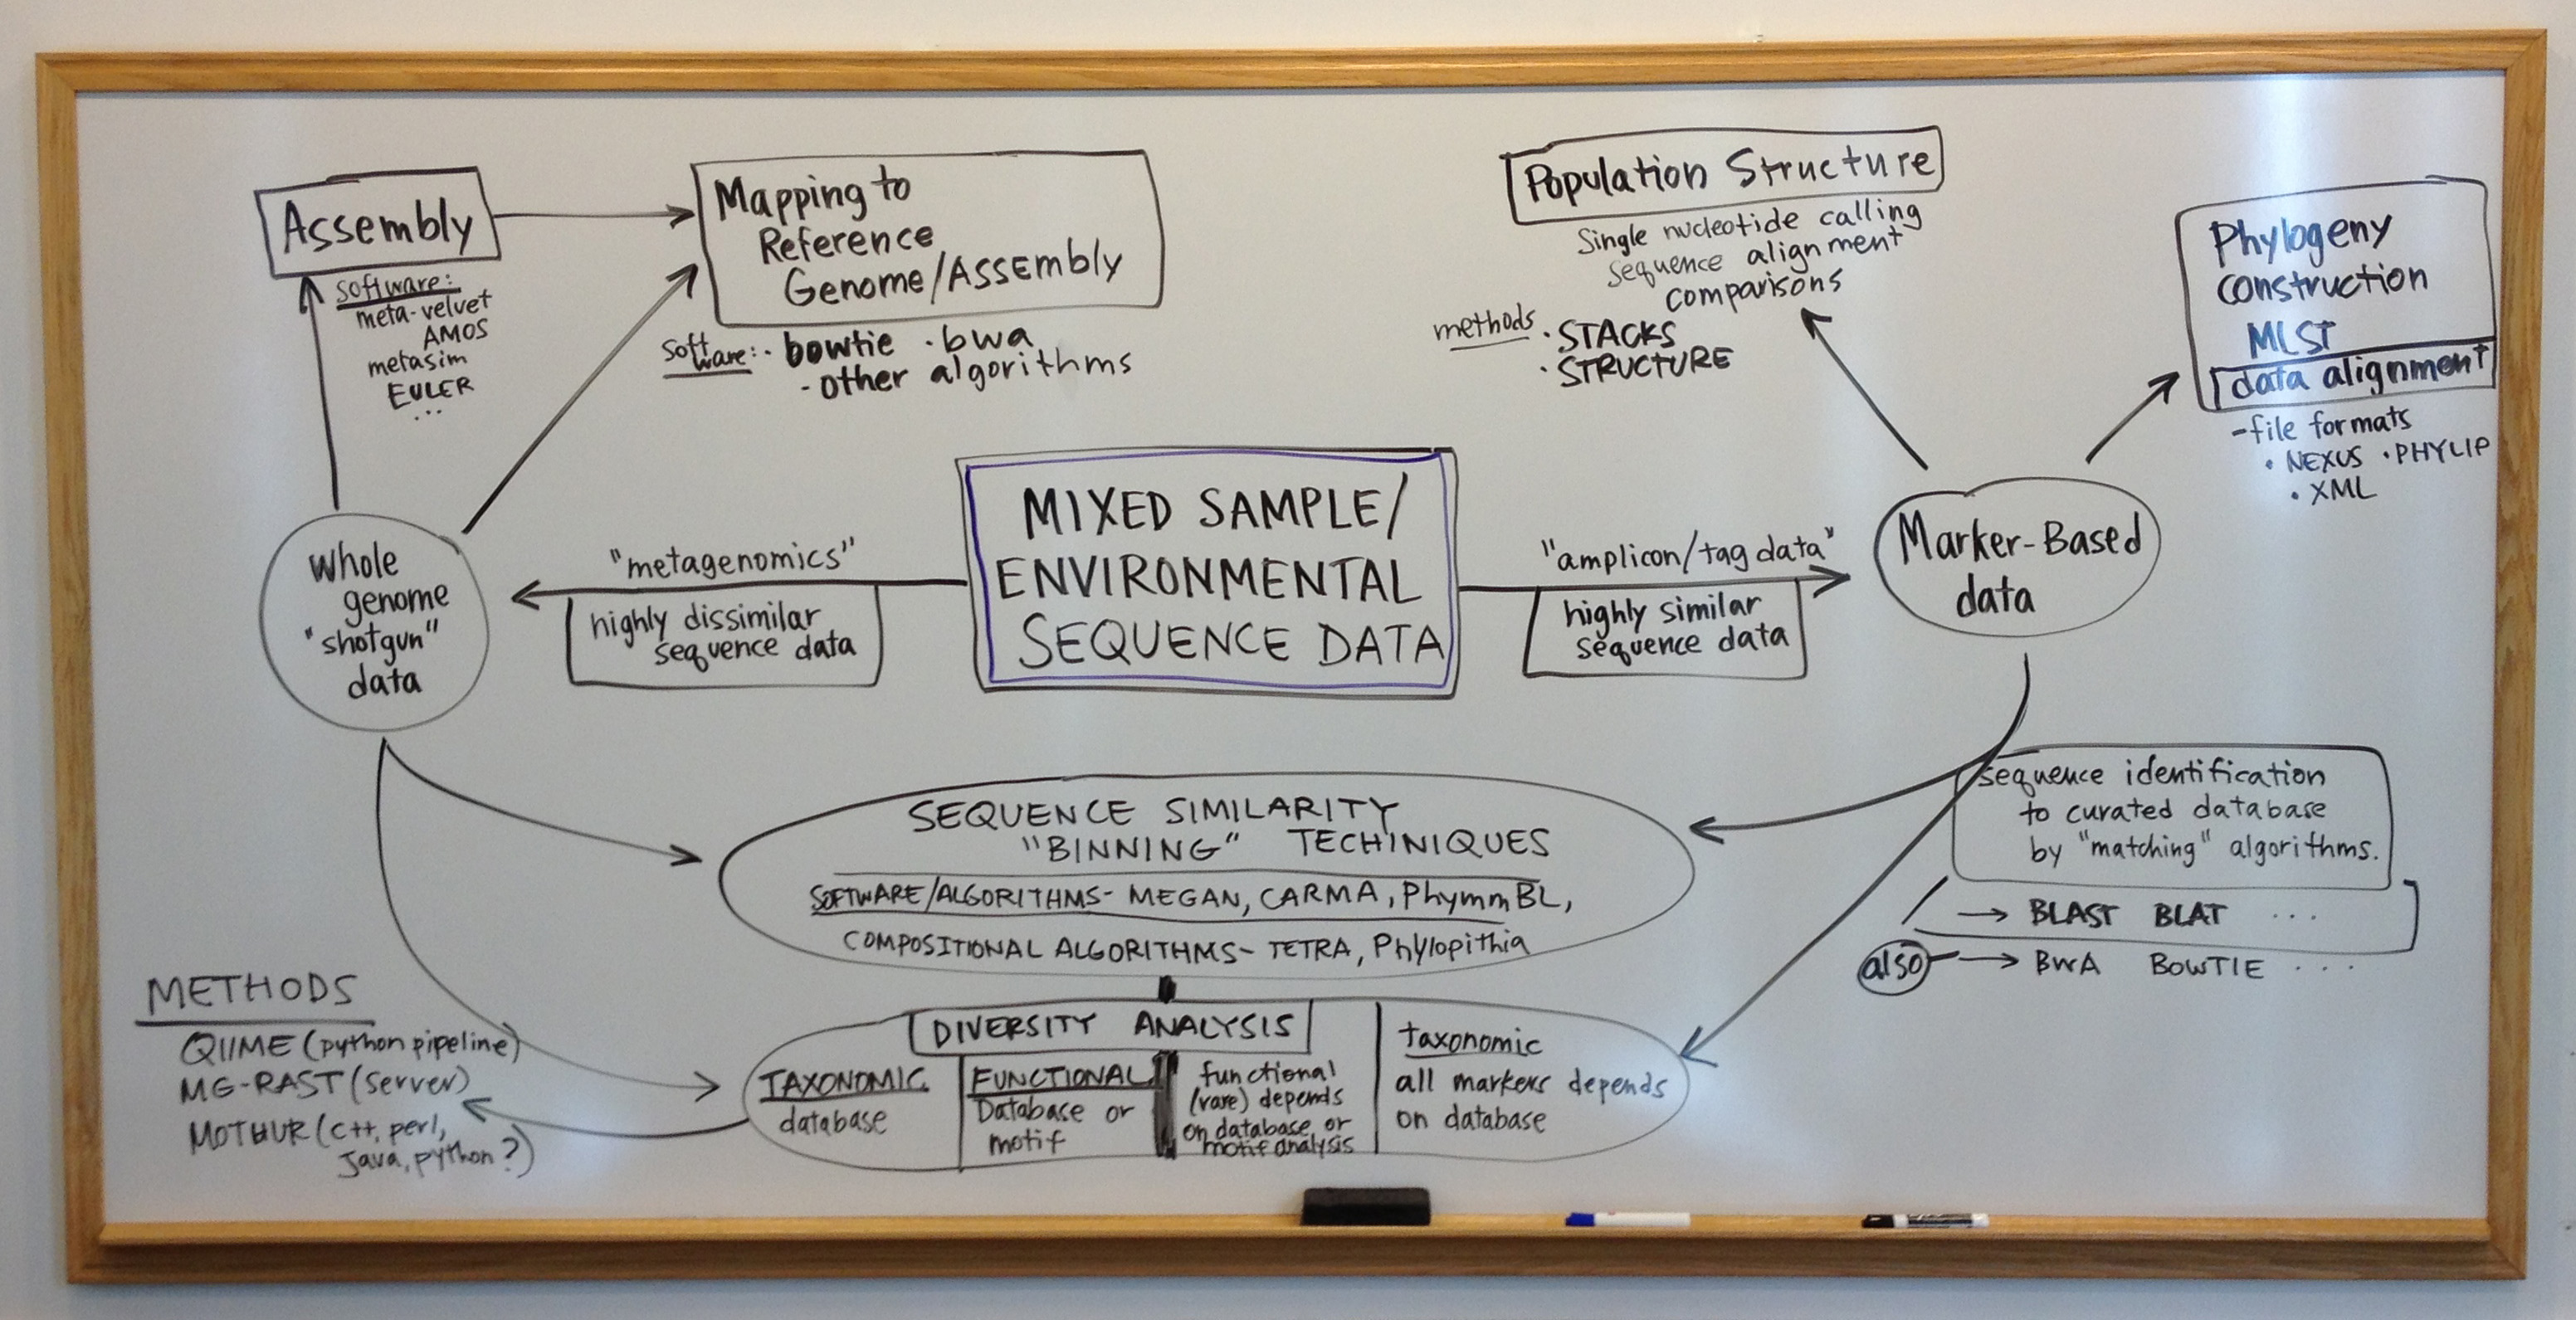 Assembly
software:
meta-velvet
AMOS
metasim
EULER
...
Mapping to
Reference
Genome/Assembly
software: · bowtie · bwa
- other algorithms
Population Structure
Single nucleotide calling
sequence alignment
comparisons
methods · STACKS
· STRUCTURE
Phylogeny
construction
MLST
data alignment
- file formats
· NEXUS · PHYLIP
· XML
Whole
genome
"shotgun"
data
"metagenomics"
highly dissimilar
sequence data
MIXED SAMPLE/
ENVIRONMENTAL
SEQUENCE DATA
"amplicon/tag data"
highly similar
sequence data
Marker-Based
data
SEQUENCE SIMILARITY
"BINNING" TECHINIQUES
SOFTWARE/ALGORITHMS- MEGAN, CARMA, PhymmBL,
COMPOSITIONAL ALGORITHMS- TETRA, Phylopithia
sequence identification
to curated database
by "matching" algorithms.
→ BLAST BLAT ...
also → BWA BOWTIE ....
METHODS
QIIME (python pipeline)
MG-RAST (server)
MOTHUR (c++, perl,
java, python?)
DIVERSITY ANALYSIS
TAXONOMIC
database
FUNCTIONAL
Database or
motif
functional
(rare) depends
on database or
motif analysis
taxonomic
all markers depends
on database